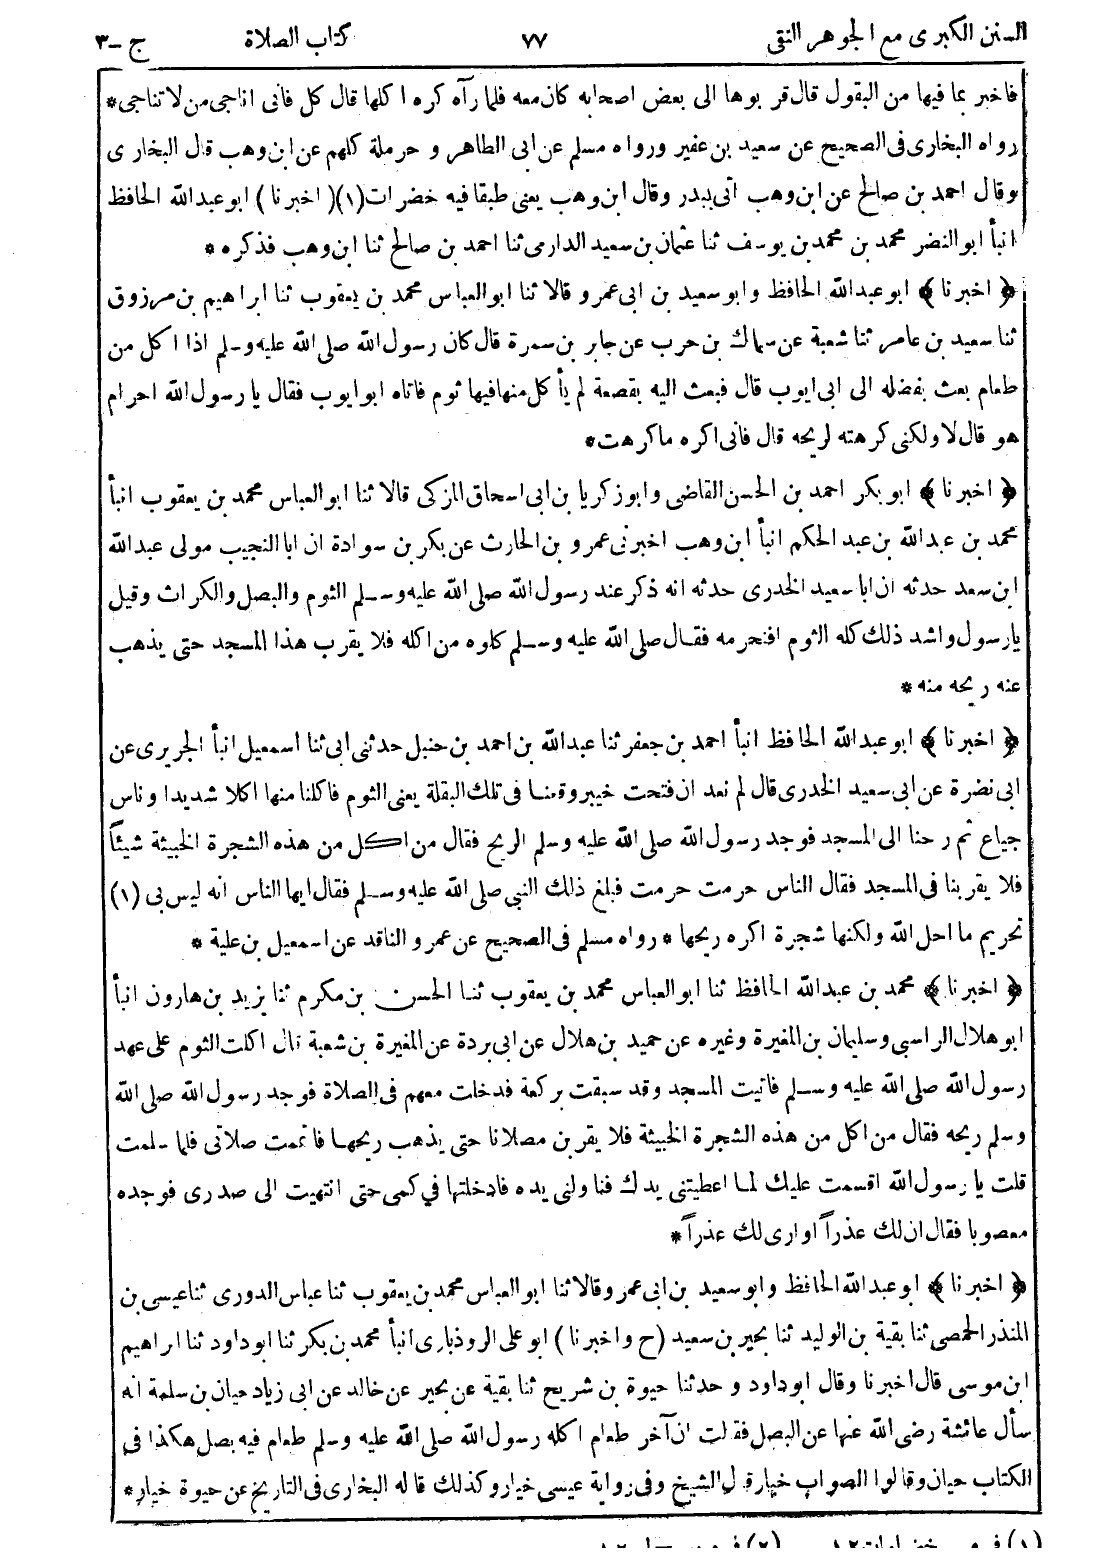 السنن الكبرى مع الجوهر النقى ٧٧ كتاب الصلاة ج -٣
فاخبر بما فيها من البقول قال قربوها الى بعض اصحابه كان معه فلما رآه كره اكلها قال كل فانى اناجى من لا تناجى*
رواه البخارى فى الصحيح عن سعيد بن عفير ورواه مسلم عن ابى الطاهر و حرملة كلهم عن ابن وهب قال البخارى
وقال احمد بن صالح عن ابن وهب اتى ببدر وقال ابن وهب يعنى طبقا فيه خضرات (١) ( اخبرنا ) ابو عبد الله الحافظ
انبأ ابو النضر محمد بن محمد بن يوسف ثنا عثمان بن سعيد الدارمى ثنا احمد بن صالح ثنا ابن وهب فذكره *
﴿ اخبرنا ﴾ ابو عبد الله الحافظ وابو سعيد بن ابى عمرو قالا ثنا ابو العباس محمد بن يعقوب ثنا ابراهيم بن مرزوق
ثنا سعيد بن عامر ثنا شعبة عن سماك بن حرب عن جابر بن سمرة قال كان رسول الله صلى الله عليه وسلم اذا اكل من
طعام بعث بفضله الى ابى ايوب قال فبعث اليه بقصعة لم يأكل منها فيها ثوم فاتاه ابو ايوب فقال يا رسول الله احرام
هو قال لا ولكنى كرهته لريحه قال فانى اكره ما كرهت*
﴿ اخبرنا ﴾ ابو بكر احمد بن الحسن القاضى وابو زكريا بن ابى اسحاق المزكى قالا ثنا ابو العباس محمد بن يعقوب انبأ
محمد بن عبد الله بن عبد الحكم انبأ ابن وهب اخبرنى عمرو بن الحارث عن بكر بن سوادة ان ابا النجيب مولى عبد الله
ابن سعد حدثه ان ابا سعيد الخدرى حدثه انه ذكر عند رسول الله صلى الله عليه وسلم الثوم والبصل والكراث وقيل
يا رسول واشد ذلك كله الثوم افتحرمه فقال صلى الله عليه وسلم كلوه من اكله فلا يقرب هذا المسجد حتى يذهب
عنه ريحه منه *
﴿ اخبرنا ﴾ ابو عبد الله الحافظ انبأ احمد بن جعفر ثنا عبد الله بن احمد بن حنبل حدثنى ابى ثنا اسمعيل انبأ الجريرى عن
ابى نضرة عن ابى سعيد الخدرى قال لم نعد ان فتحت خيبر وقعنا فى تلك البقلة يعنى الثوم فاكلنا منها اكلا شديدا وناس
جياع ثم رحنا الى المسجد فوجد رسول الله صلى الله عليه وسلم الريح فقال من اكل من هذه الشجرة الخبيثة شيئاً
فلا يقربنا فى المسجد فقال الناس حرمت حرمت فبلغ ذلك النبى صلى الله عليه وسلم فقال ايها الناس انه ليس بى (١)
تحريم ما احل الله ولكنها شجرة اكره ريحها * رواه مسلم فى الصحيح عن عمرو الناقد عن اسمعيل بن علية *
﴿ اخبرنا ﴾ محمد بن عبد الله الحافظ ثنا ابو العباس محمد بن يعقوب ثنا الحسن بن مكرم ثنا يزيد بن هارون انبأ
ابو هلال الراسبى وسليمان بن المغيرة وغيره عن حميد بن هلال عن ابى بردة عن المغيرة بن شعبة قال اكلت الثوم على عهد
رسول الله صلى الله عليه وسلم فاتيت المسجد وقد سبقت بركعة فدخلت معهم فى الصلاة فوجد رسول الله صلى الله
وسلم ريحه فقال من اكل من هذه الشجرة الخبيثة فلا يقربن مصلانا حتى يذهب ريحها فاتممت صلاتى فلما سلمت
قلت يا رسول الله اقسمت عليك لما اعطيتنى يدك فناولنى يده فادخلتها فى كمى حتى انتهيت الى صدرى فوجده
معصوبا فقال ان لك عذراً او ارى لك عذراً*
﴿ اخبرنا ﴾ ابو عبد الله الحافظ وابو سعيد بن ابى عمرو قالا ثنا ابو العباس محمد بن يعقوب ثنا عباس الدورى ثنا عيسى بن
المنذر الحمصى ثنا بقية بن الوليد ثنا بحير بن سعيد (ح واخبرنا ) ابو على الروذبارى انبأ محمد بن بكر ثنا ابو داود ثنا ابراهيم
ابن موسى قال اخبرنا وقال ابو داود و حدثنا حيوة بن شريح ثنا بقية عن بحير عن خالد عن ابى زياد حيان بن سلمة انه
سأل عائشة رضى الله عنها عن البصل فقالت ان آخر طعام اكله رسول الله صلى الله عليه وسلم طعام فيه بصل هكذا فى
الكتاب حيان وقالوا الصواب خيار قال الشيخ وفى رواية عيسى خيار وكذلك قاله البخارى فى التاريخ عن حيوة خيار*